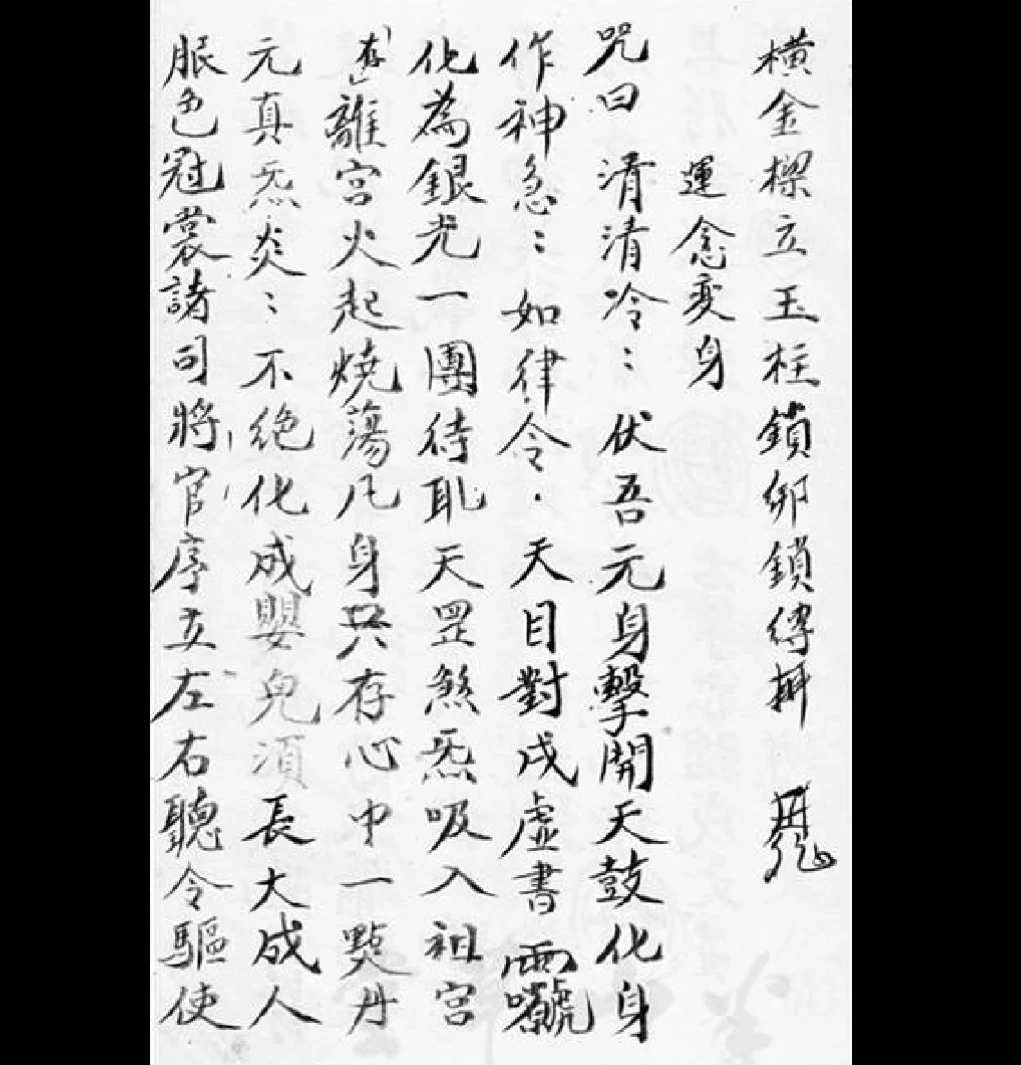 横金樑立玉柱鎖綁鎖縛摒
運念变身
咒曰 清清冷〻伏吾元身擊開天鼓化身
作神急〻如律令·天目對戌虚書
化為銀光一團待耴天罡煞炁吸入祖宫
存離宫火起燒蕩凡身只存心中一㸃丹
元真炁炎〻不绝化成嬰兒湏長大成人
服色冠裳諸司將官序立左右聽令驅使